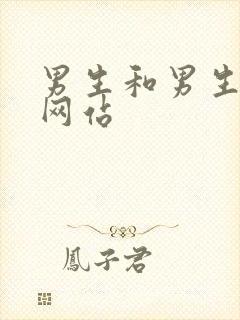 男生和男生
网站
鳳子君